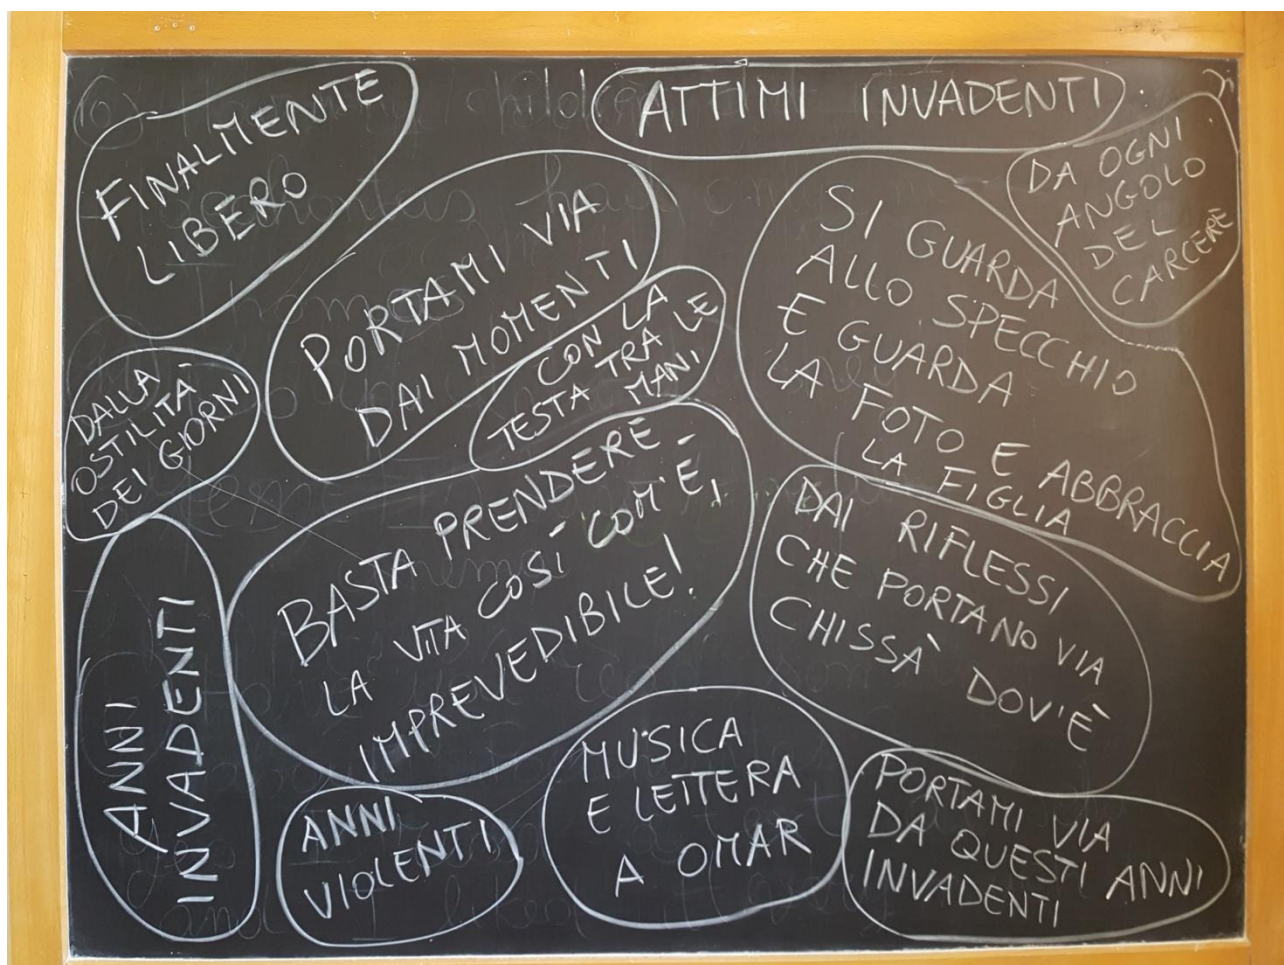 FINALMENTE
LIBERO
ATTIMI INVADENTI
DA OGNI
ANGOLO
DEL
CARCERE
PORTAMI VIA
DAI MOMENTI
SI GUARDA
ALLO SPECCHIO
E GUARDA
LA FOTO E ABBRACCIA
LA FIGLIA
CON LA
TESTA TRA LE
MANI
DALLA
OSTILITÀ
DEI GIORNI
BASTA PRENDERE
LA VITA COSÍ COM'È,
IMPREVEDIBILE!
DAI RIFLESSI
CHE PORTANO VIA
CHISSÀ DOV'È
ANNI
INVADENTI
ANNI
VIOLENTI
MUSICA
E LETTERA
A OMAR
PORTAMI VIA
DA QUESTI ANNI
INVADENTI